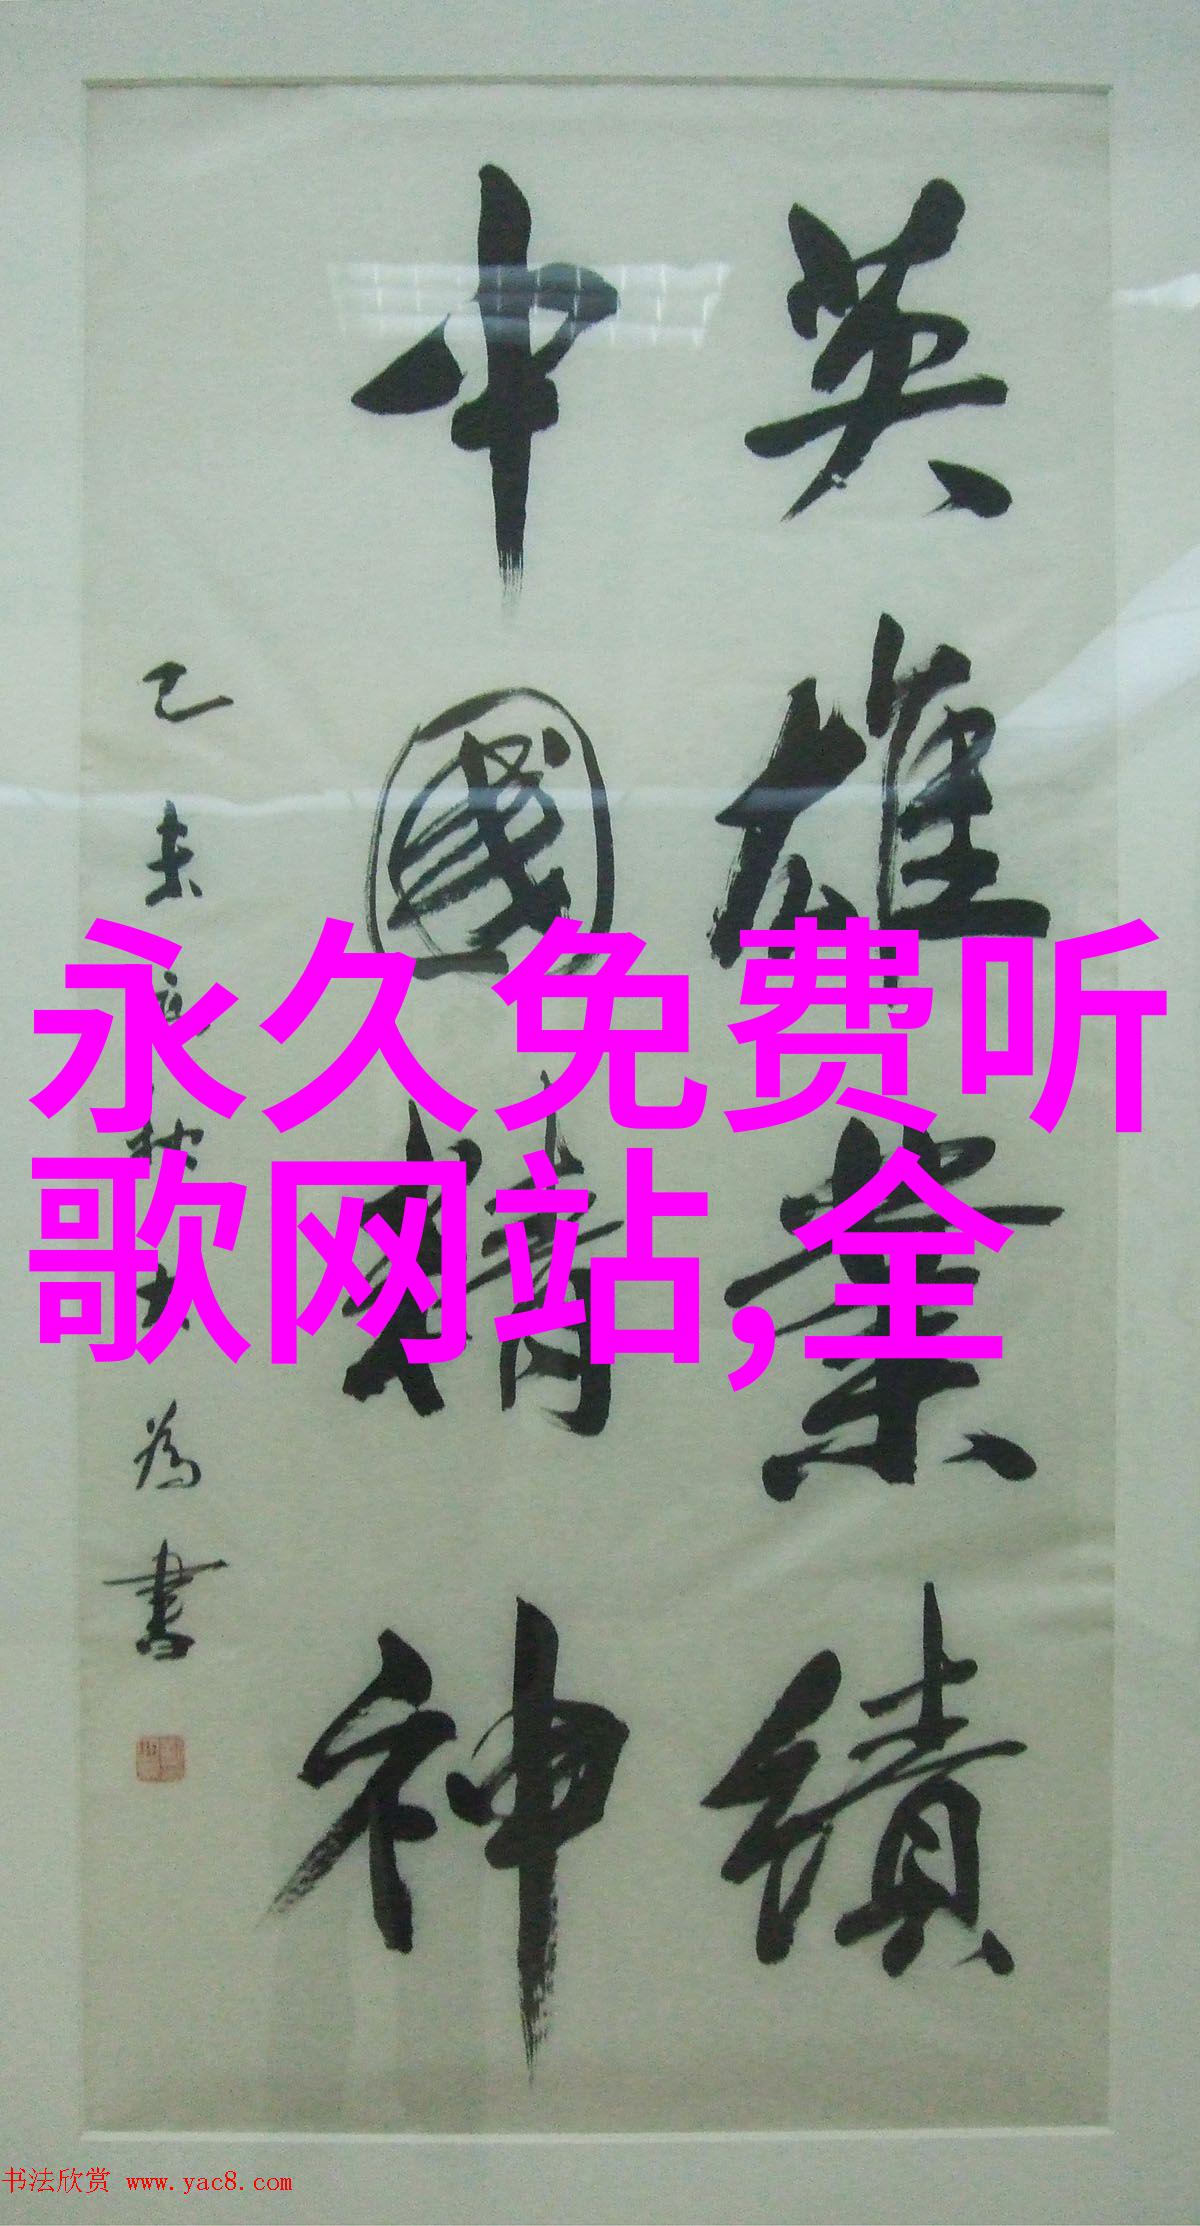 英雄業績
中國精神
己未
為書
永久免费听
歌网站,全
书法欣赏 www.yac8.com